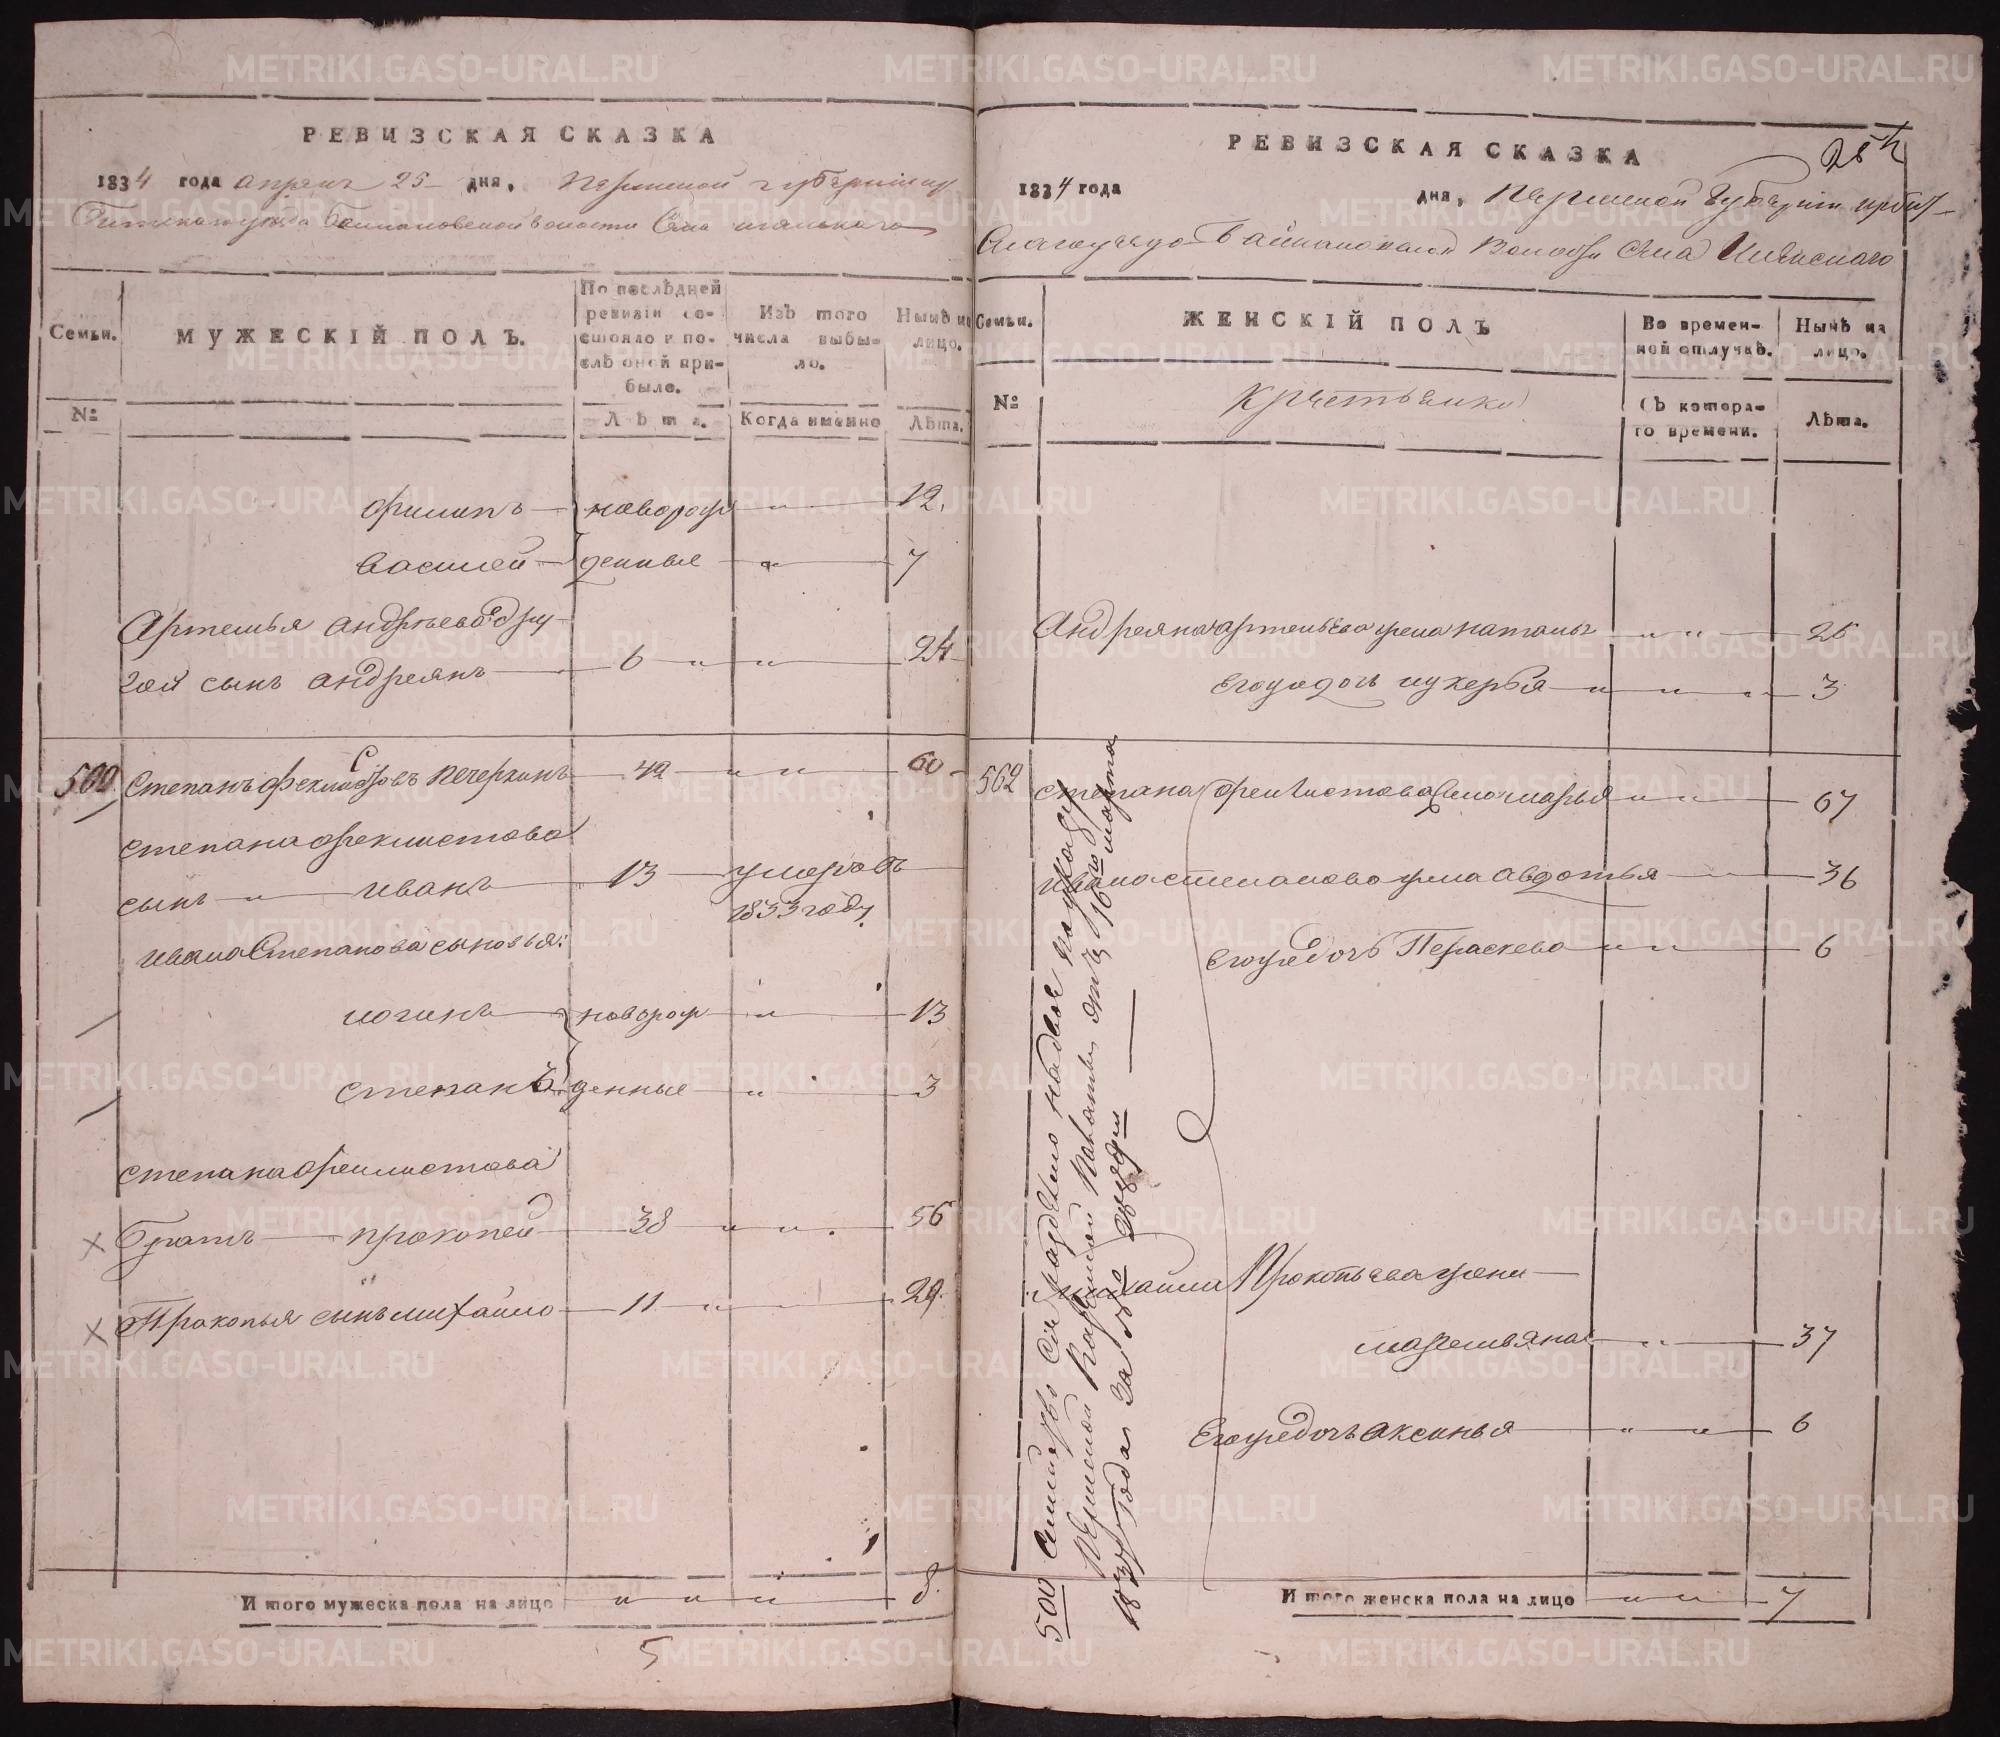 РЕВИЗСКАЯ СКАЗКА
1834 года апреля 25 дня, Пермской губернии
уезда волости Села
Семьи.
МУЖЕСКІЙ ПОЛЪ.
По послѣдней ревизіи состояло и послѣ оной прибыло.
Изъ того числа выбыло.
Нынѣ на лицо.
№
Лѣта.
Когда именно
Лѣта.
Филипъ новорож 12.
Василей денные 7
Артемья Андреева дру
гой сынъ Андреянъ 6 24
500 Степанъ Феклистовъ Печеркинъ 42 60
Степана Феклистова
сынъ Иванъ 13 умеръ въ
1833 году
Ивана Степанова сыновья:
Логинъ новорож 13
Степанъ денные 3
Степана Феклистова
Братъ Прокопей 38 56
Прокопья сынъ Михайло 11 29.
И того мужеска пола на лицо 8.
5
РЕВИЗСКАЯ СКАЗКА
1834 года дня, Пермской Губерніи Ирбит
скаго уезда Волости Села
Семьи.
ЖЕНСКІЙ ПОЛЪ
Во временной отлучкѣ.
Нынѣ на лицо.
№
Крестьянко
Съ котораго времени.
Лѣта.
Андреяна Артемьева жена Наталья 25
Его ж дочь Лукерья 3
562 Степана Феклистова жена Марья 67
Ивана Степанова жена Авдотья 36
Его же дочь Параскева 6
Михайла Прокопьева жена
Маремьяна 37
Его же дочь Аксинья 6
И того женска пола на лицо 7
500 Семейство Сіе раздѣлено на двое по указу
Пермской Казенной Палаты отъ 16го марта
1837 Года за №
METRIKI.GASO-URAL.RU